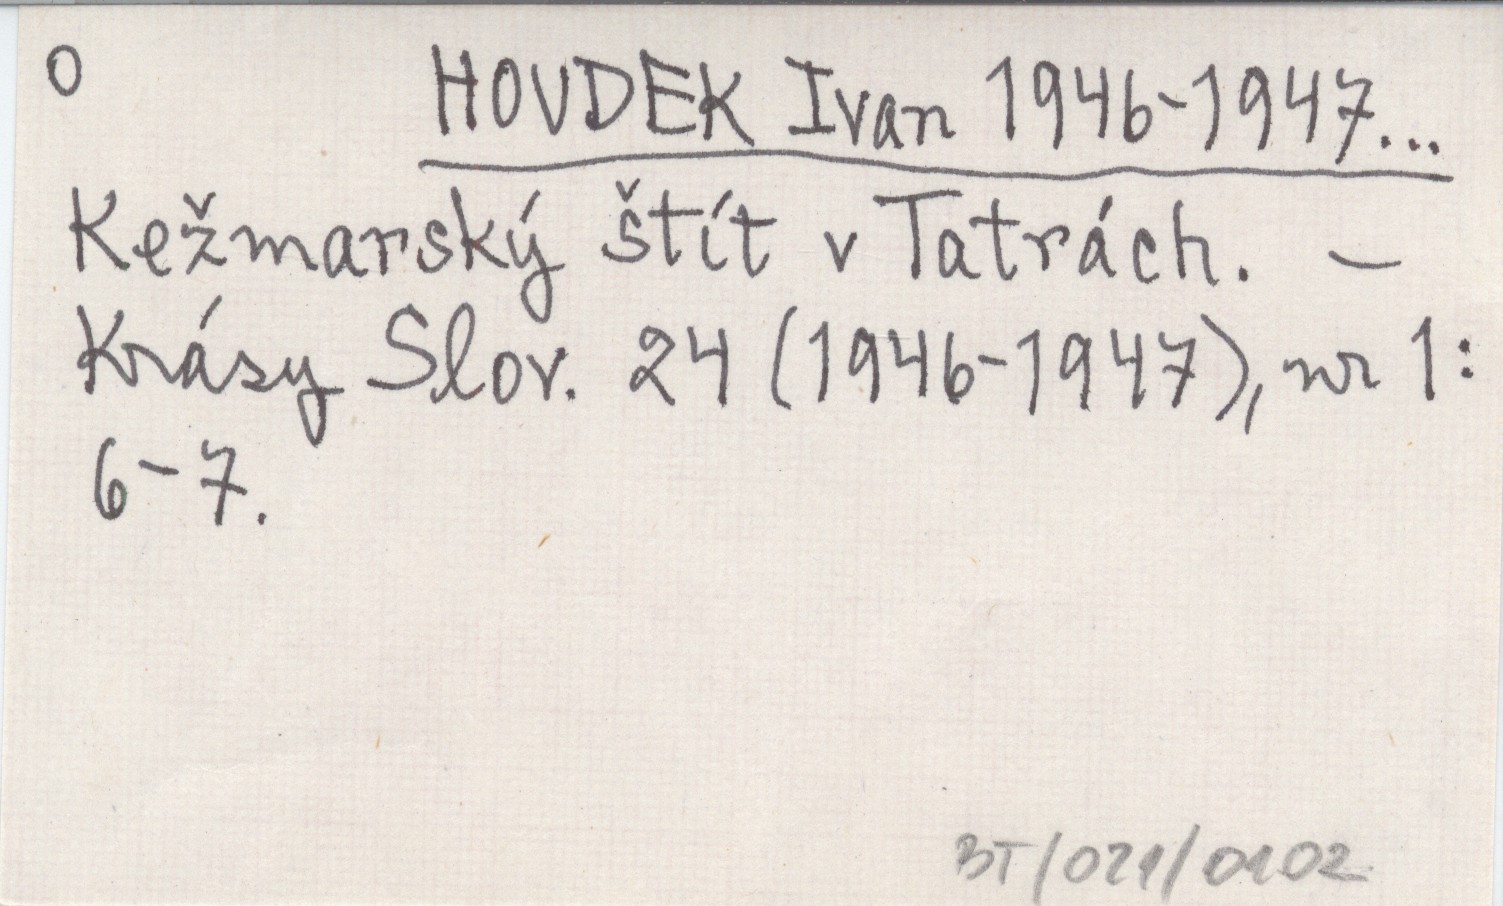 O
HOUDEK Ivan 1946-1947...
Kežmarský štít v Tatrách. –
Krásy Slov. 24 (1946-1947), nr 1:
6-7.
BT/021/0102